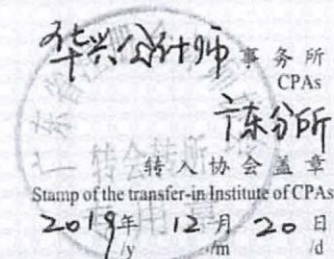 华兴会计师事务所
CPAs
广东分所
转会转所
转入协会盖章
Stamp of the transfer-in Institute of CPAs
2019年 12月 20日
/y /m /d